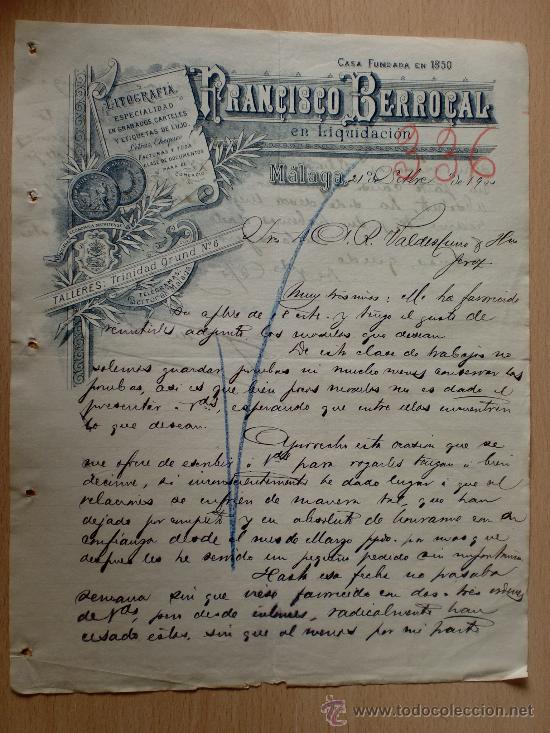 CASA FUNDADA EN 1850
FRANCISCO BERROCAL
en Liquidación
LITOGRAFÍA
ESPECIALIDAD
EN GRABADOS, CARTELES
Y ETIQUETAS DE LUJO.
Letras, Cheques
FACTURAS Y TODA
CLASE DE DOCUMENTOS
PARA EL
COMERCIO
336
Málaga, 21 de de 19
TALLERES: Trinidad Grund Nº 6
TELEGRAMAS:
Sres. D. A. R. Valdespino y Hno
Jerez
Muy Sres mios: Me ha favorecido
Su de 18 este. y tengo el gusto de
remitirles adjunto los modelos que desean.
De esta clase de trabajos no
solemos guardar pruebas ni mucho menos conservar las
piedras, así es que bien pocos modelos me es dado el
presentar a Vds, esperando que entre ellos encuentren
lo que desean.
Aprovecho esta ocasion que se
me ofrece de escribir á Vds para rogarles tengan á bien
decirme, si inconscientemente he dado lugar á que
relaciones se de manera tal, que han
dejado por completo y en absoluto de honrarme con su
confianza desde el mes de Marzo ppdo. por mas que
despues les he servido un pequeño pedido sin importancia
Hasta esa fecha no pasaba
semana sin que fuese favorecido con dos ó tres ordenes
de Vds, pero desde entonces, radicalmente han
cesado éstas, sin que al menos por mi parte
todocoleccion.net